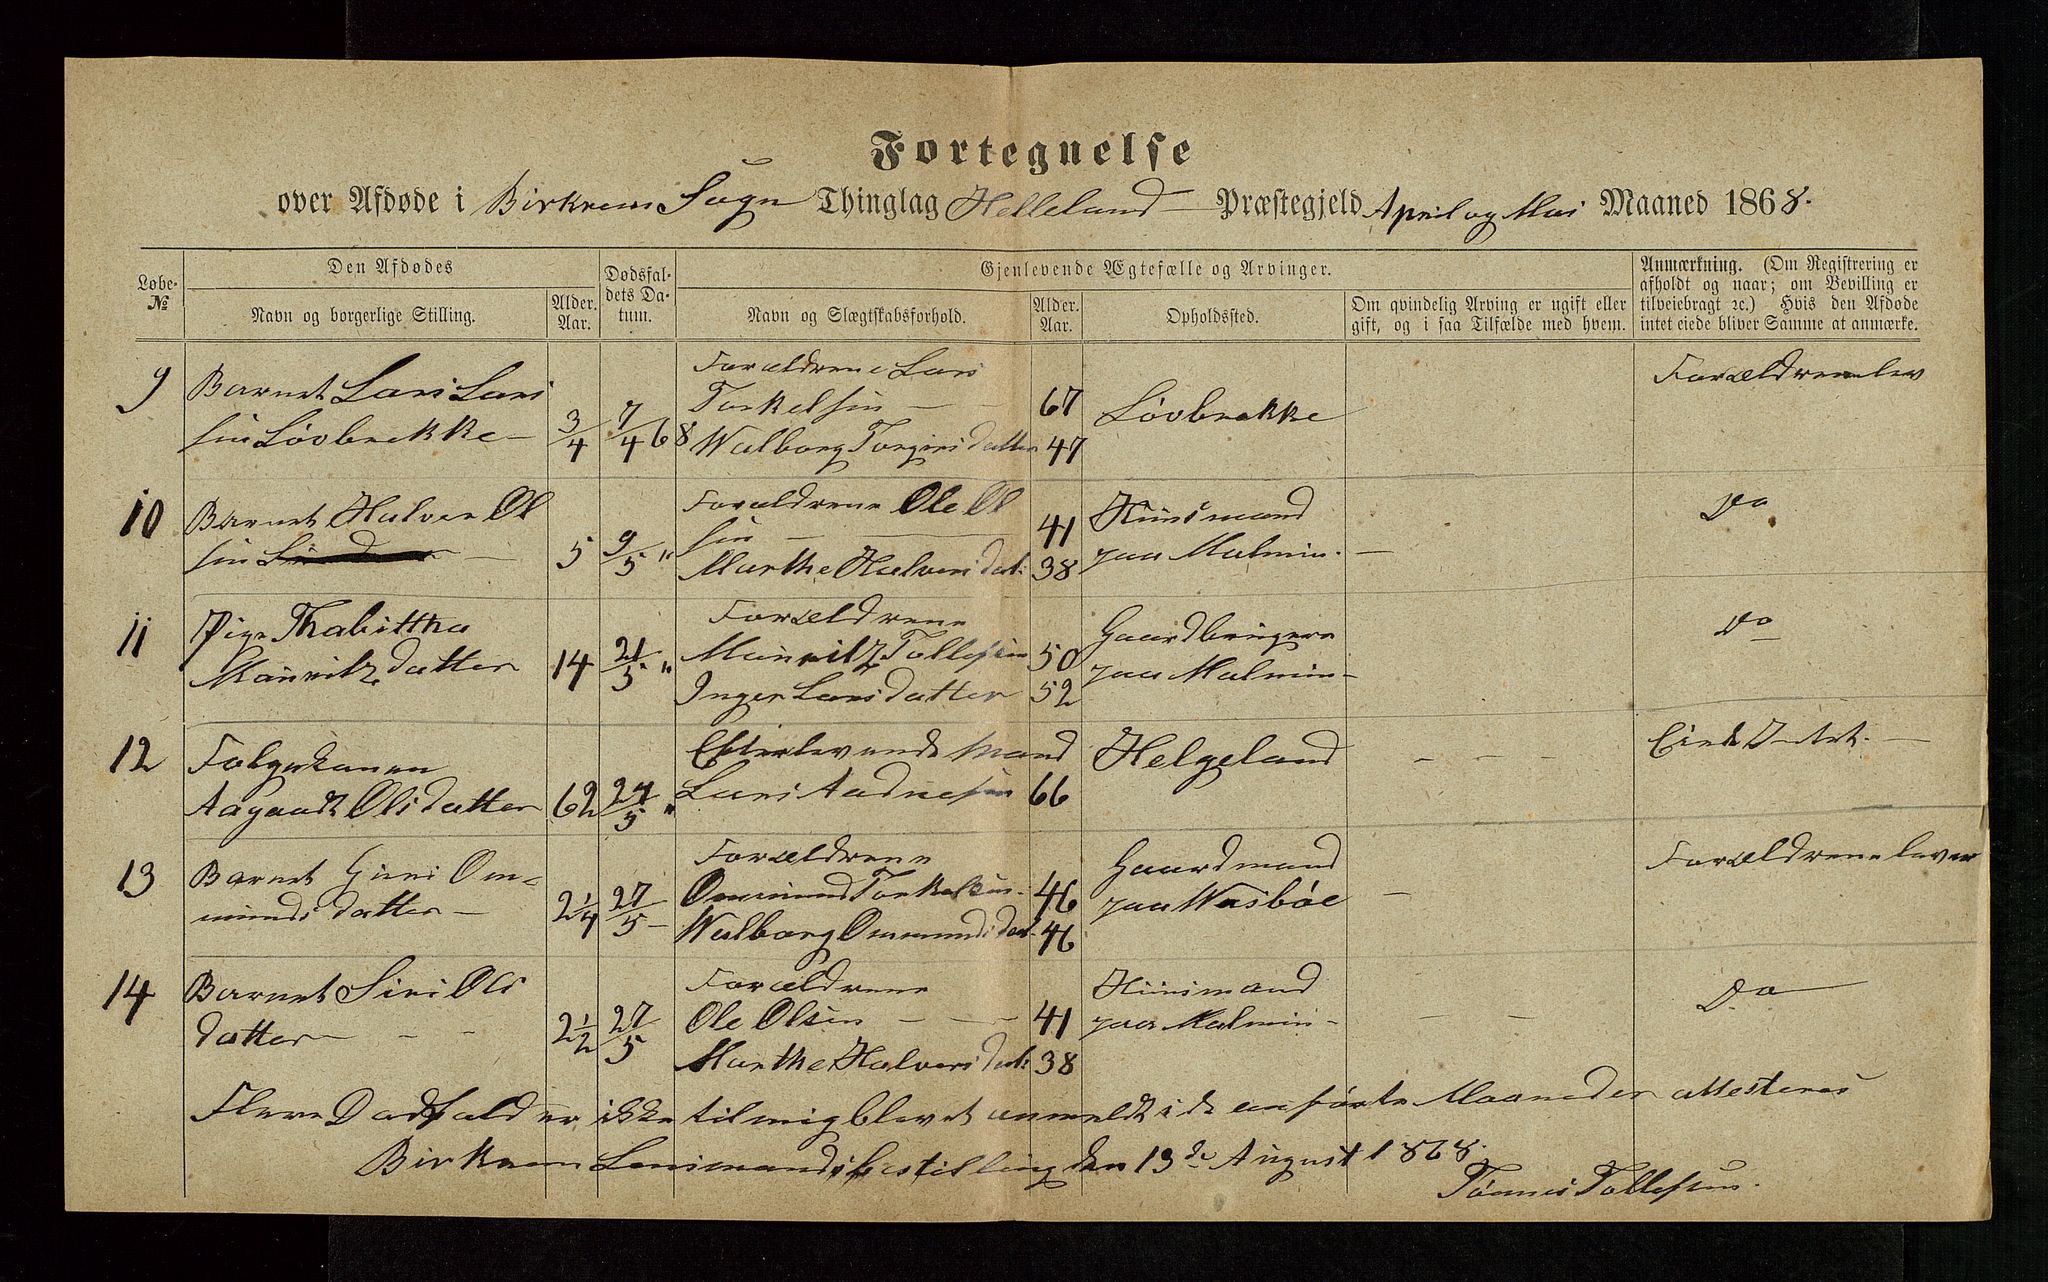 Fortegnelse
over Afdøde i Birkrem Sogn Thinglag Helleland Præstegjeld April og Mai Maaned 1868.
Løbe-№
Den Afdødes
Navn og borgerlige Stilling.
Alder. Aar.
Dødsfaldets Datum.
Gjenlevende Ægtefælle og Arvinger.
Navn og Slægtskabsforhold.
Alder. Aar.
Opholdssted.
Om qvindelig Arving er ugift eller
gift, og i saa Tilfælde med hvem.
Anmærkning. (Om Registrering er
afholdt og naar; om Bevilling er
tilveiebragt ꝛc.) Hvis den Afdøde
intet eiede bliver Samme at anmærke.
9 Barnet Lars Lars
sen Løvbrekke – 3/4 7/4 68
Forældrene Lars
Torkelsen – 67
Walborg Torgersdatter 47
Løvbrekke
Forældrene lev
10 Barnet Halver Ol
sen – 5 9/5 "
Forældrene Ole Ol
sen – 41
Marthe Halversdat: 38
Huusmand
paa Malmin. –
Do
11 Pige Thabittha
Mauritzdatter 14 21/5 "
Forældrene
Mauritz Tollefsen 50
Inger Larsdatter 52
Gaardbruger
paa Malmin –
Do
12 Folgekonen
Aagaadt Olsdatter 62 24/5 "
Efterlevende Mand
Lars Aadnesen 66
Helgeland – – –
Eiede Intet. –
13 Barnet Siri Om-
mundsdatter – 2 1/4 27/5 –
Forældrene
Ommund Torkelsen. 46
Walborg Ommundsdat. 46
Gaardmand
paa Wasbøe –
Forældrene lever
14 Barnet Siri Ols
datter – – – 2 1/2 27/5
Forældrene
Ole Olsen – – – 41
Marthe Halversdat: 38
Huusmand
paa Malmin – – –
Do
Flere Dødsfald er ikke til mig blevet anmeldt i de anførte Maaneder attesteres
Birkrem Lensmandsbestilling den 13de August 1868.
Tønnes Tollefsen.